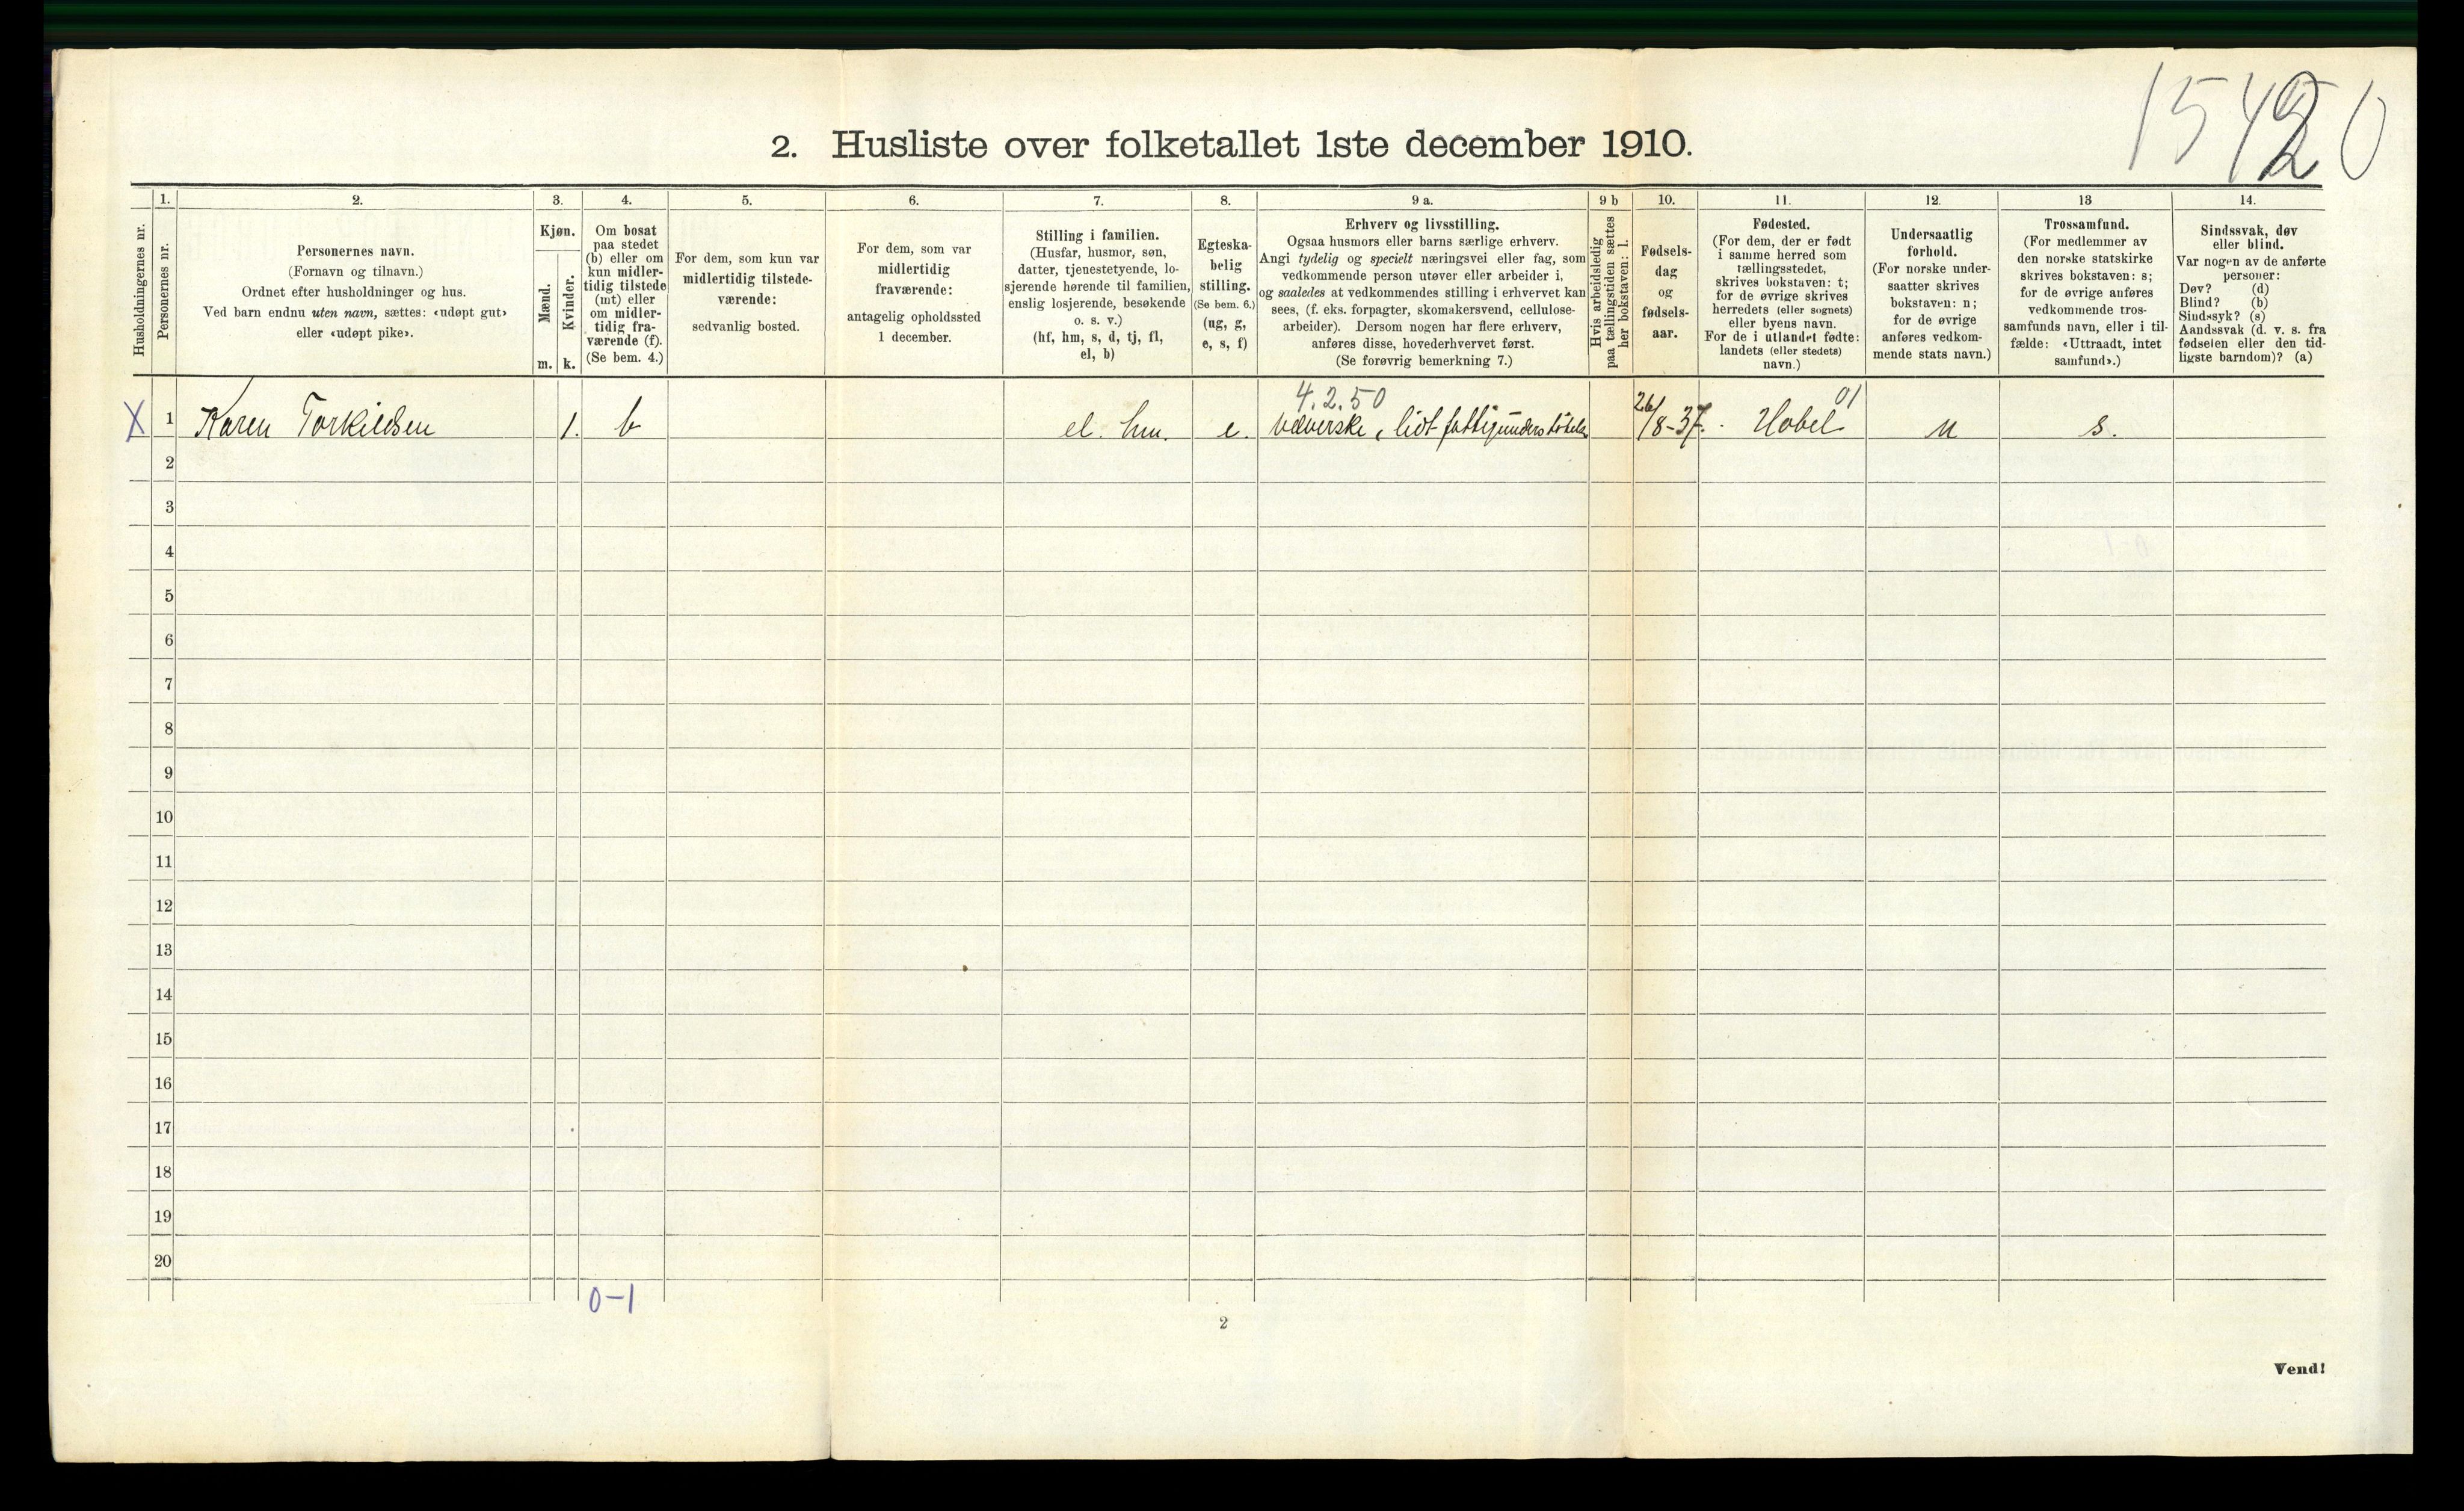 2. Husliste over folketallet 1ste december 1910.
Husholdningernes nr.
1.
Personernes nr.
2.
Personernes navn.
(Fornavn og tilnavn.)
Ordnet efter husholdninger og hus.
Ved barn endnu uten navn, sættes: «udøpt gut»
eller «udøpt pike».
3.
Kjøn.
Mænd.
Kvinder.
m. k.
4.
Om bosat
paa stedet
(b) eller om
kun midler-
tidig tilstede
(mt) eller
om midler-
tidig fra-
værende (f).
(Se bem. 4.)
5.
For dem, som kun var
midlertidig tilstede-
værende:
sedvanlig bosted.
6.
For dem, som var
midlertidig
fraværende:
antagelig opholdssted
1 december.
7.
Stilling i familien.
(Husfar, husmor, søn,
datter, tjenestetyende, lo-
sjerende hørende til familien,
enslig losjerende, besøkende
o. s. v.)
(hf, hm, s, d, tj, fl,
el, b)
8.
Egteska-
belig
stilling.
(Se bem. 6.)
(ug, g,
e, s, f)
9 a.
Erhverv og livsstilling.
Ogsaa husmors eller barns særlige erhverv.
Angi tydelig og specielt næringsvei eller fag, som
vedkommende person utøver eller arbeider i,
og saaledes at vedkommendes stilling i erhvervet kan
sees, (f. eks. forpagter, skomakersvend, cellulose-
arbeider). Dersom nogen har flere erhverv,
anføres disse, hovederhvervet først.
(Se forøvrig bemerkning 7.)
9 b
Hvis arbeidsledig
paa tællingstiden sættes
her bokstaven: l.
10.
Fødsels-
dag
og
fødsels-
aar.
11.
Fødested.
(For dem, der er født
i samme herred som
tællingsstedet,
skrives bokstaven: t;
for de øvrige skrives
herredets (eller sognets)
eller byens navn.
For de i utlandet fødte:
landets (eller stedets)
navn.)
12.
Undersaatlig
forhold.
(For norske under-
saatter skrives
bokstaven: n;
for de øvrige
anføres vedkom-
mende stats navn.)
13
Trossamfund.
(For medlemmer av
den norske statskirke
skrives bokstaven: s;
for de øvrige anføres
vedkommende tros-
samfunds navn, eller i til-
fælde: «Uttraadt, intet
samfund».)
14.
Sindssvak, døv
eller blind.
Var nogen av de anførte
personer:
Døv? (d)
Blind? (b)
Sindssyk? (s)
Aandssvak (d. v. s. fra
fødselen eller den tid-
ligste barndom)? (a)
4.2.50
01
X 1 Karen Torkildsen 1. b el. hm. e. Væverske, lidt fattigunderstøtelse 26/8-37. Hobel n s.
2
3
4
5
6
7
8
9
10
11
12
13
14
15
16
17
18
19
20
0-1
2
Vend!